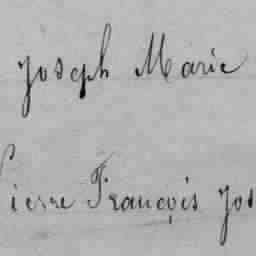 Joseph Marie
Pierre François Jos